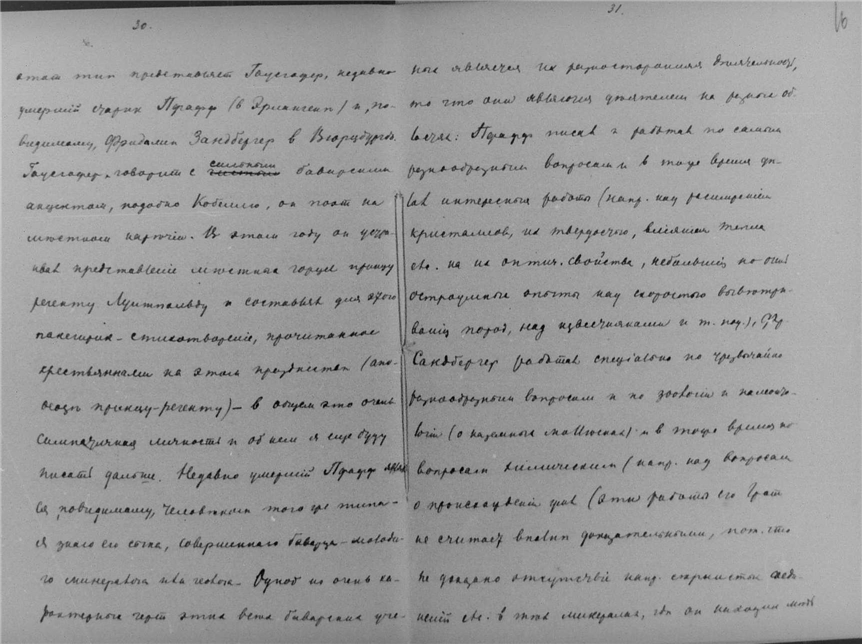 30.
этот тип представляет Гаусгофер, недавно
умерший старик Пфафф (в Эрлангене) и, по-
видимому, Фридолин Зандбергер в Вюрцбурге.
Гаусгофер, говорит с сильным баварским
акцентом, подобно Кобеллю, он поэт на
местном наречии. В этом году он устра-
ивал представление местных горцев принцу
регенту Луитпольду и составил для этого
панегирик-стихотворение, прочитанное
крестьянками на этом празднестве (апо-
принцу-регенту) – в общем это очень
симпатичная личность и об нем я еще буду
писать дальше. Недавно умерший Пфафф
ся, повидимому, человеком того же типа –
я знаю его сына, совершенного баварца – молодо-
го минералога или геолога. Одной из очень ха-
рактерных черт этих всех баварских уче-
31.
16
ных является их разносторонняя деятельность,
то что они являются деятелями на разных об-
ластях: Пфафф писал и работал по самым
разнообразным вопросам и в тоже время де-
лал интересные работы (напр. над расширением
кристаллов, их твердостью, влиянием тепла
etc. на их оптич. свойства, небольшие но очень
остроумные опыты над скоростью выветри-
вания пород, над известняками и т. под.), Фр.
Сандбергер работал специально по чрезвычайно
разнообразным вопросам и по зоологии и палеонто-
логии (о наземных моллюсках) и в тоже время по
вопросам химическим (напр. над вопросом
о происхождении жил (эти работы его Грот
не считает вполне доказательными, пот. что
не доказано отсутствие напр. сернистых соеди-
нений etc. в тех минералах, где он находил